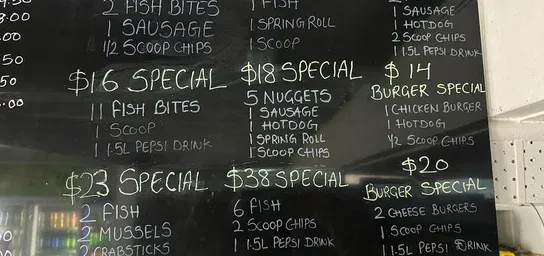 2 FISH BITES
1 SAUSAGE
1/2 SCOOP CHIPS
1 FISH
1 SPRING ROLL
1 SCOOP
1 SAUSAGE
1 HOTDOG
2 SCOOP CHIPS
1 1.5L PEPSI DRINK
$16 SPECIAL
11 FISH BITES
1 SCOOP
1 1.5L PEPSI DRINK
$18 SPECIAL
5 NUGGETS
1 SAUSAGE
1 HOTDOG
1 SPRING ROLL
1 SCOOP CHIPS
$14
BURGER SPECIAL
1 CHICKEN BURGER
1 HOTDOG
1/2 SCOOP CHIPS
$23 SPECIAL
2 FISH
2 MUSSELS
2 CRABSTICKS
$38 SPECIAL
6 FISH
2 SCOOP CHIPS
1 1.5L PEPSI DRINK
$20
BURGER SPECIAL
2 CHEESE BURGERS
1 SCOOP CHIPS
1 1.5L PEPSI DRINK